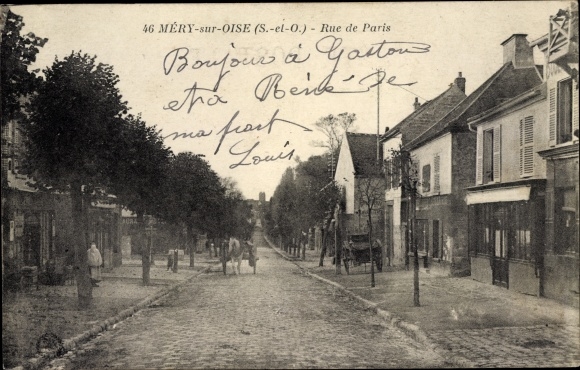 46 MÉRY-sur-OISE (S.-et-O.) - Rue de Paris
Bonjour à Gaston
et a Réné de
ma part
Louis